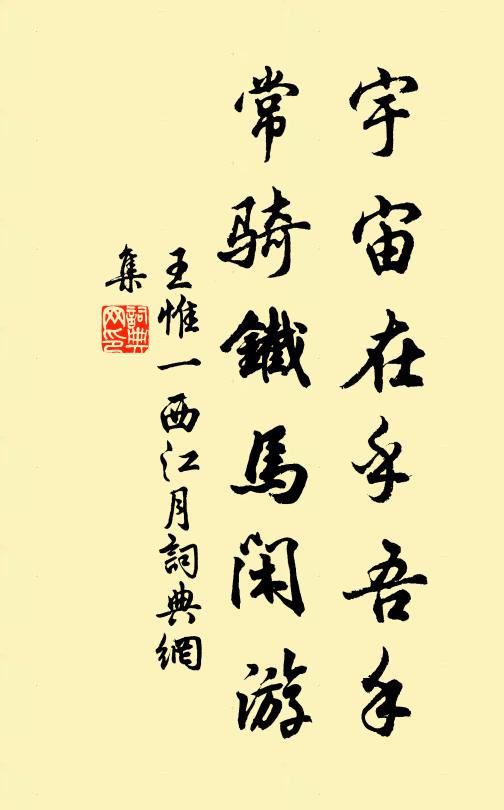 宇宙在乎吾手
常騎鐵馬閑游
王惟一西江月詞典網
集
詞典
网印